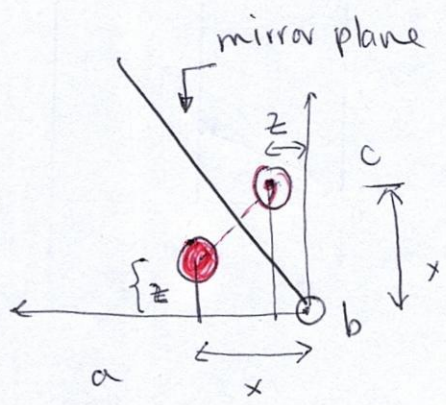 mirror plane
z
c
x
z
b
a
x